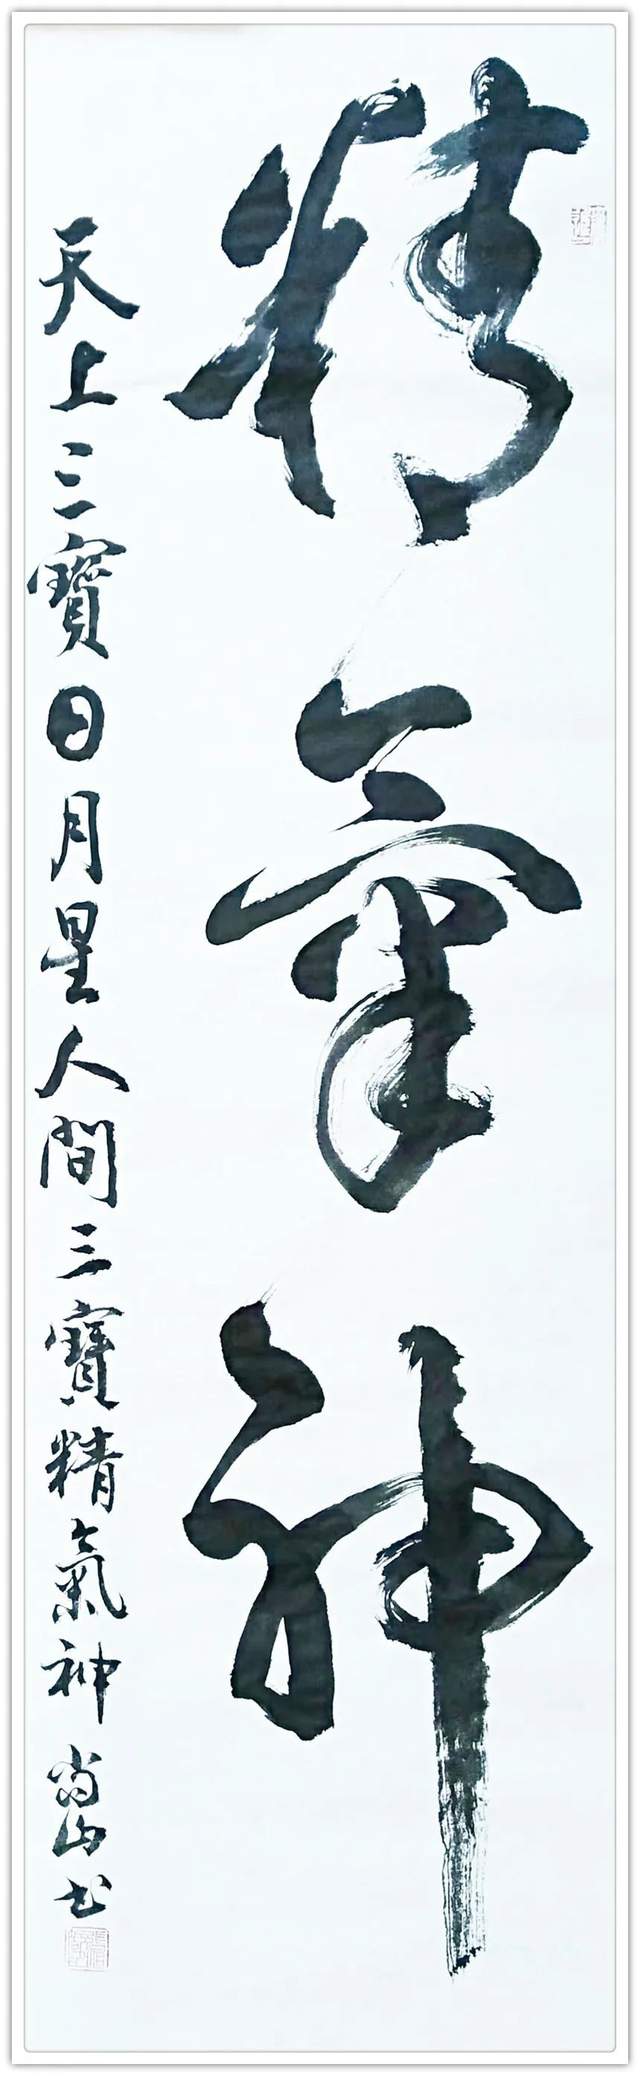 精氣神
天上三寶日月星人間三寶精氣神 尚山书